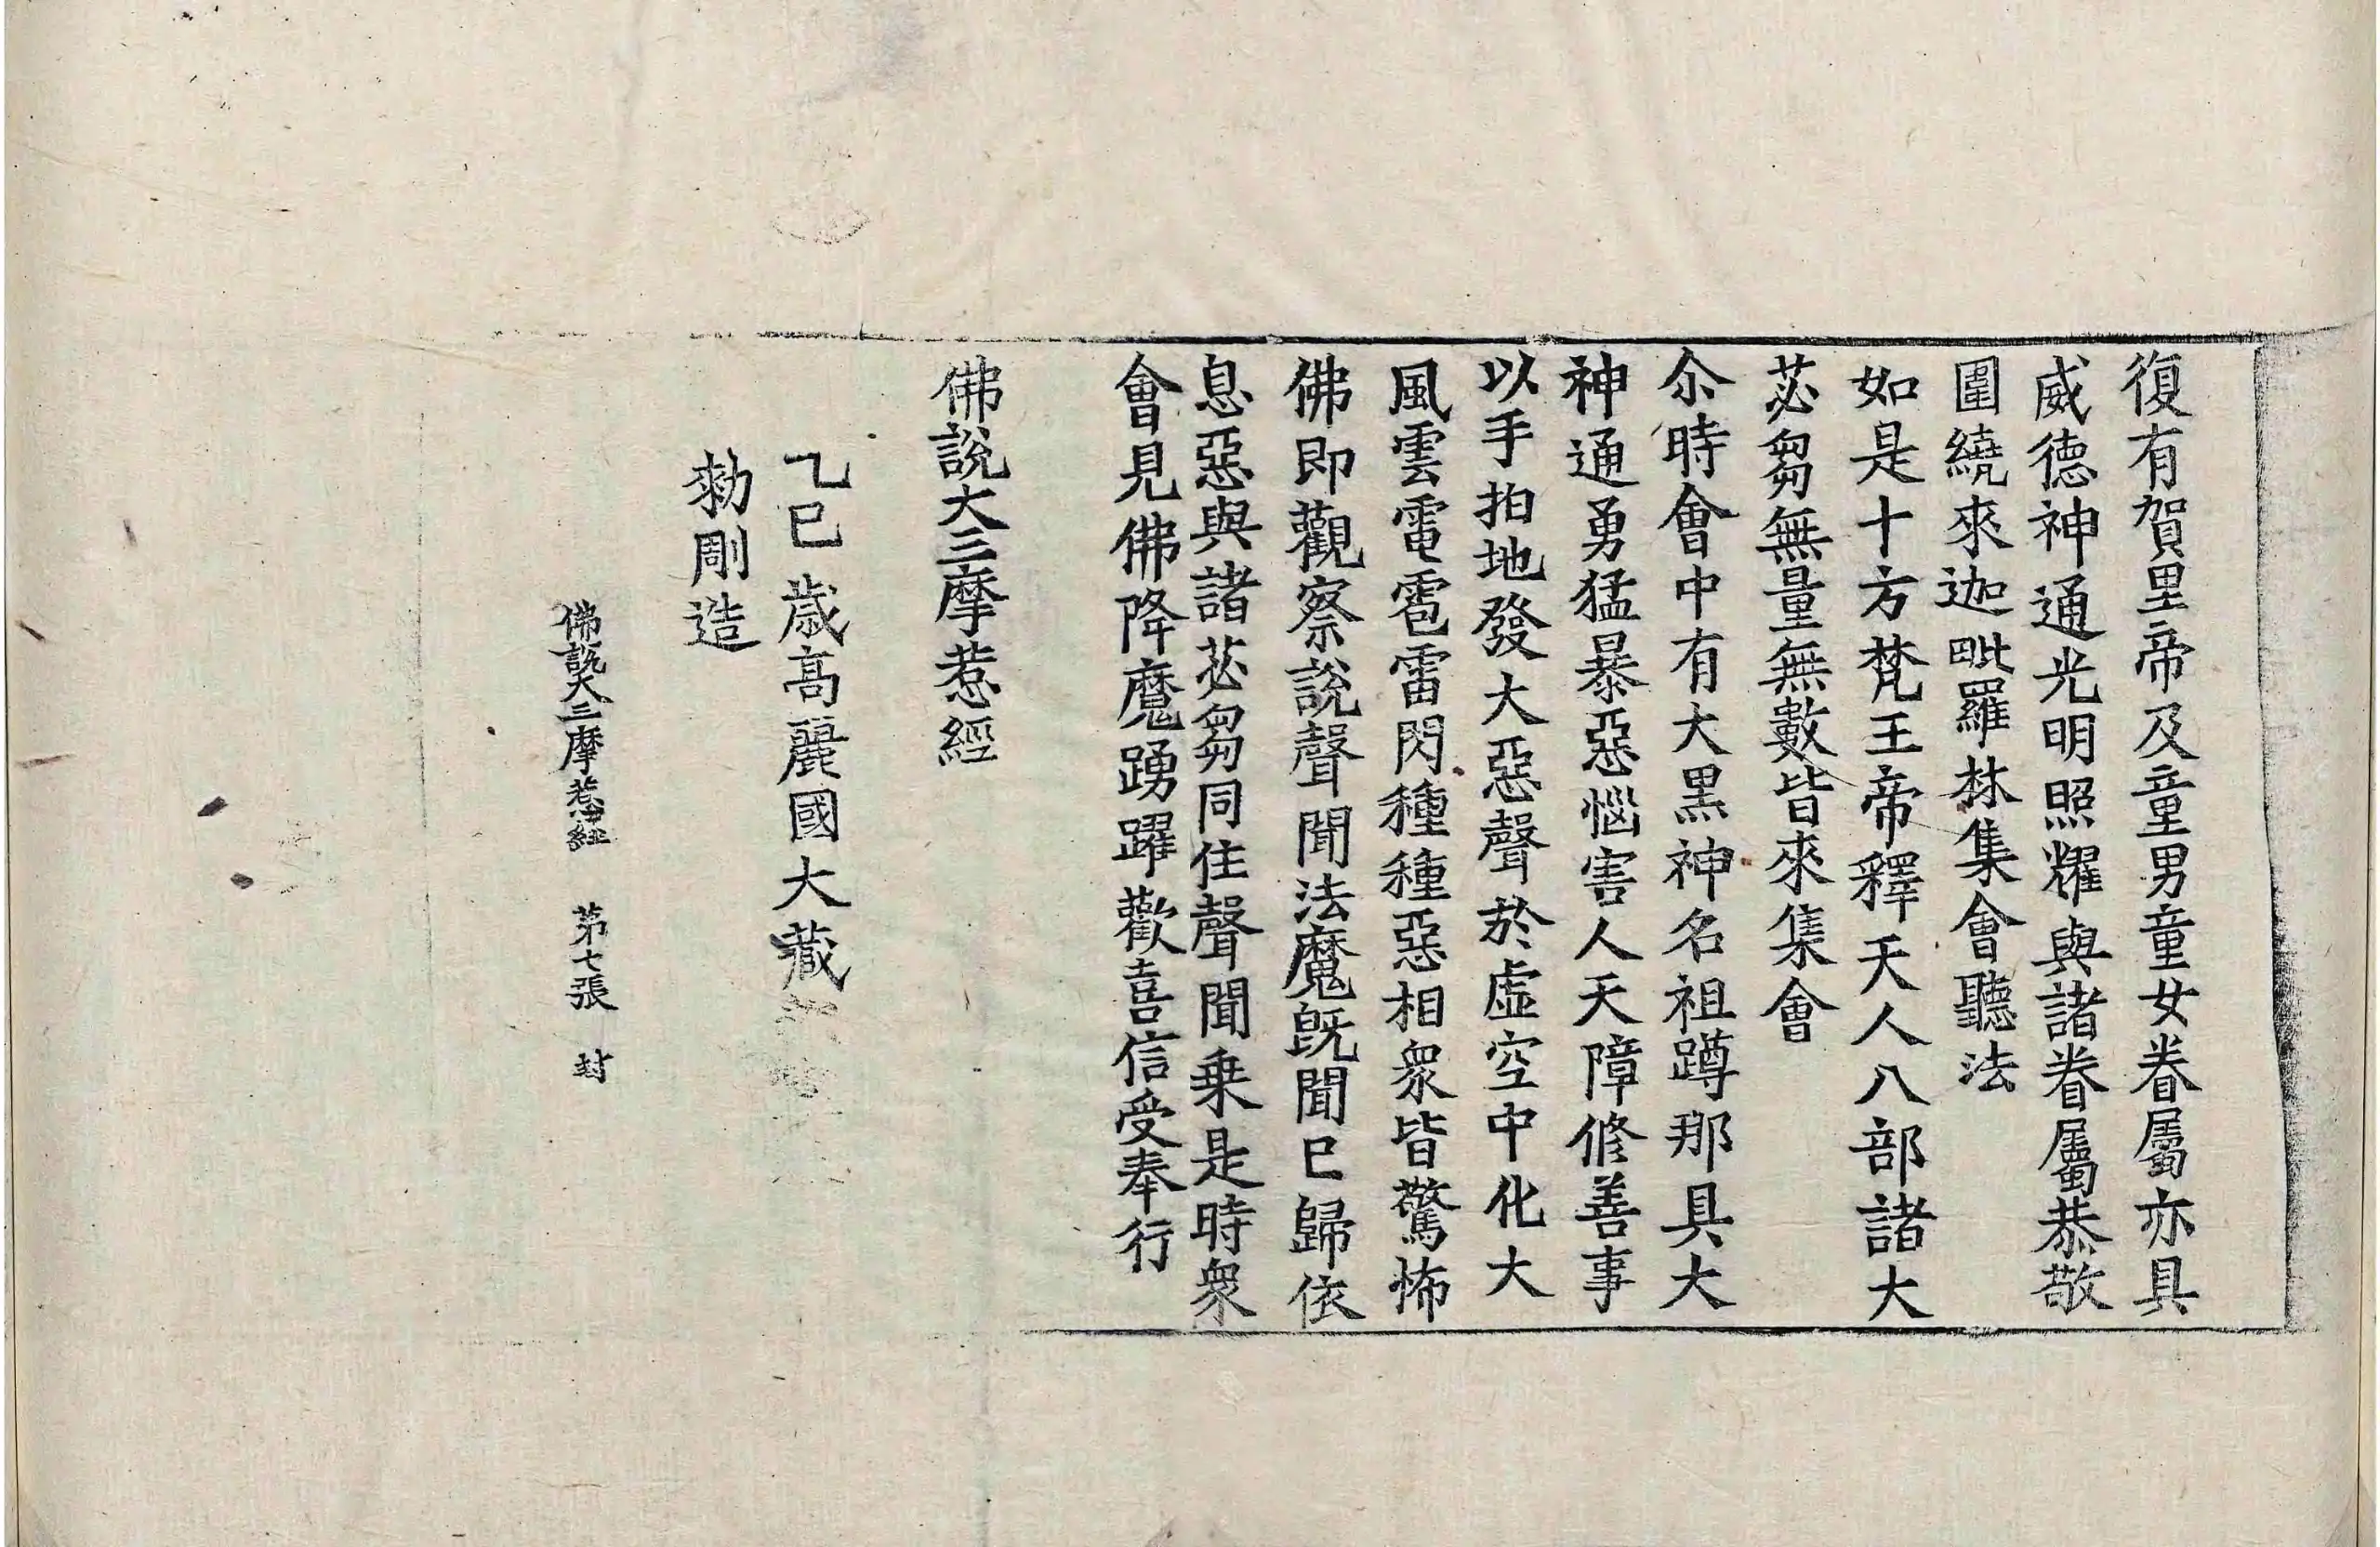 復有賀里帝及童男童女眷屬亦具
威德神通光明照耀與諸眷屬恭敬
圍繞來迦毗羅林集會聽法
如是十方梵王帝釋天人八部諸大
苾芻無量無數皆來集會
尒時會中有大黑神名祖蹲那具大
神通勇猛暴惡惱害人天障修善事
以手拍地發大惡聲於虛空中化大
風雲電雹雷閃種種惡相衆皆驚怖
佛即觀察說聲聞法魔旣聞已歸依
息惡與諸苾芻同住聲聞乗是時衆
會見佛降魔踴躍歡喜信受奉行
佛說大三摩惹經
乙巳歲高麗國大藏
勑彫造
佛說大三摩惹經 第七張 封